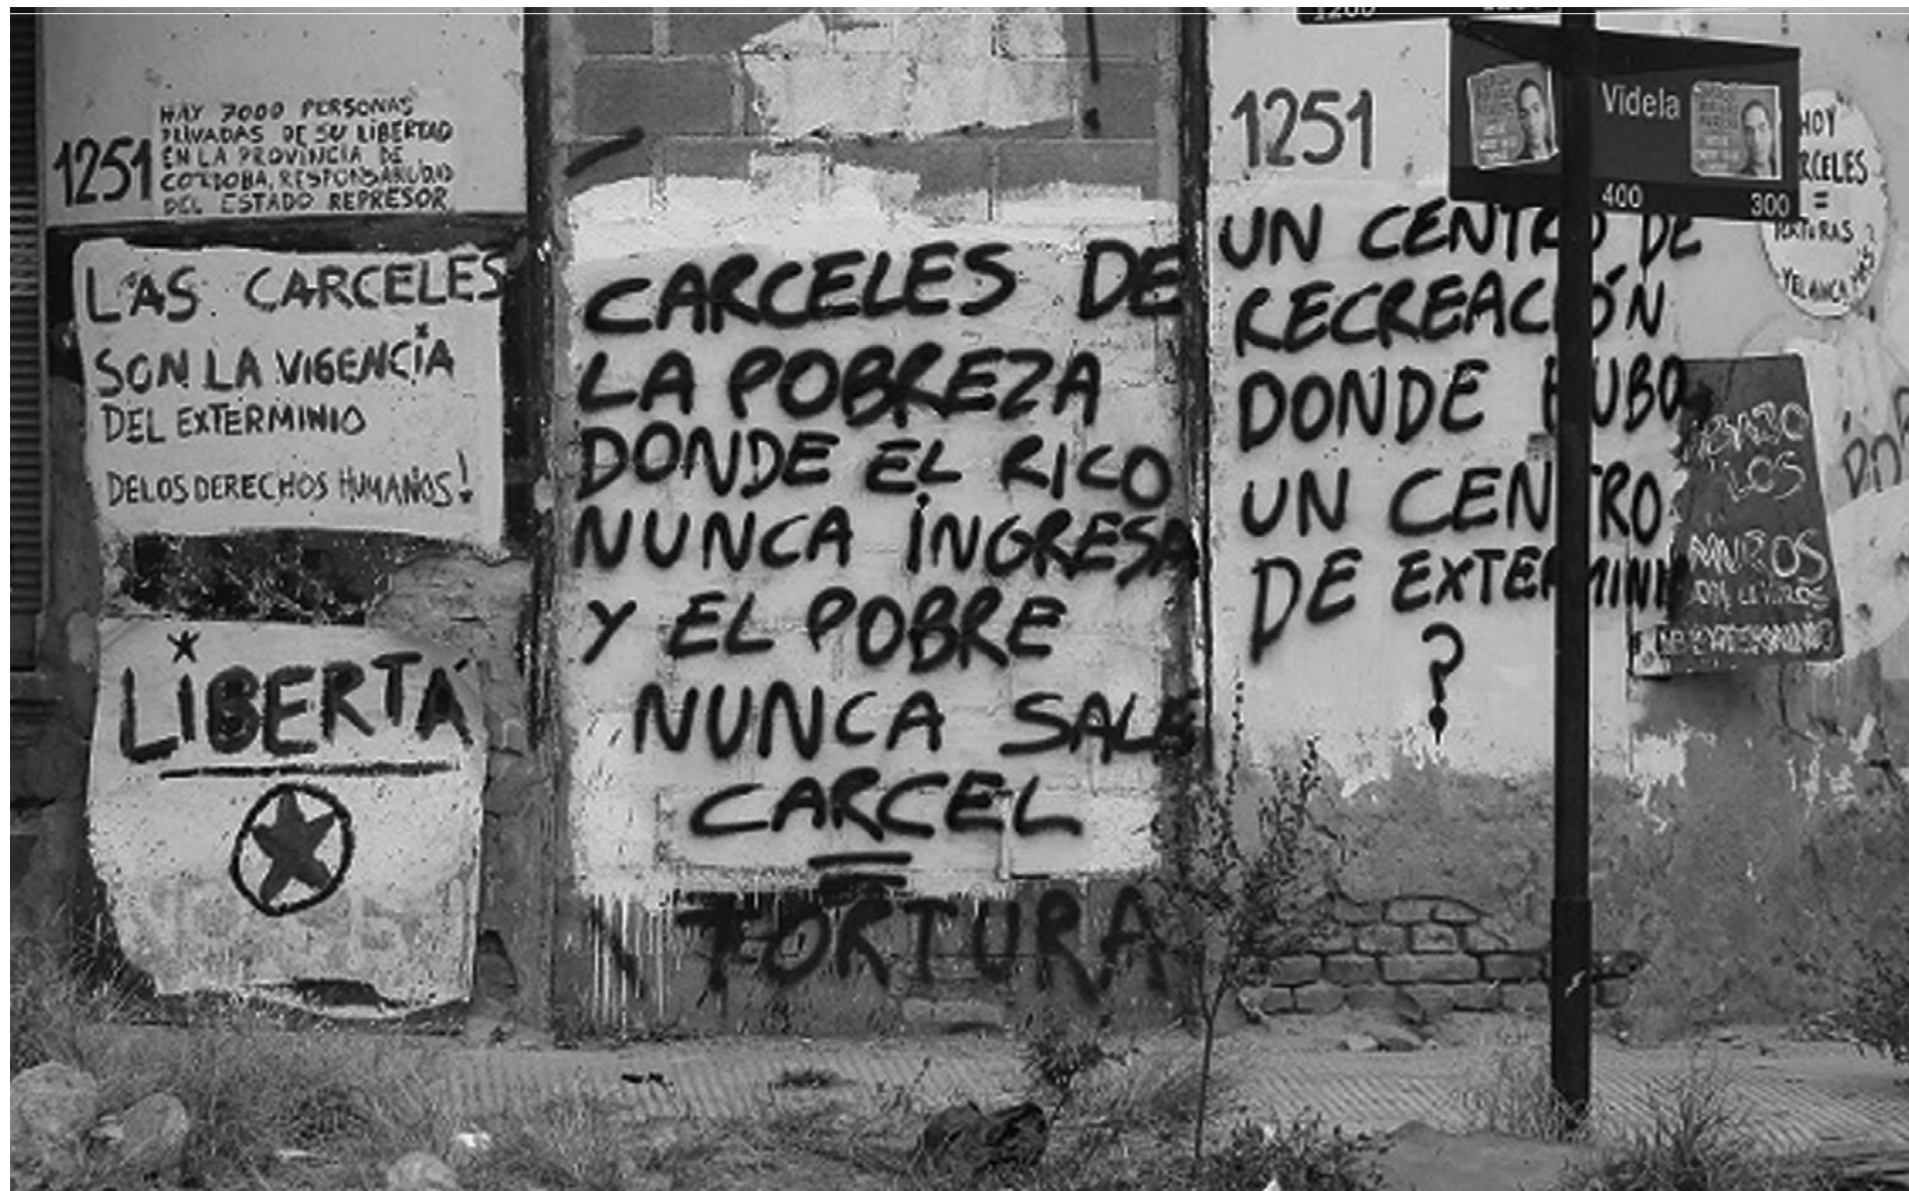 1251
HAY 7000 PERSONAS
PRIVADAS DE SU LIBERTAD
EN LA PROVINCIA DE
CORDOBA, RESPONSABILIDAD
DEL ESTADO REPRESOR
LAS CARCELES
SON LA VIGENCIA
DEL EXTERMINIO
DE LOS DERECHOS HUMANOS!
LIBERTÁ
CARCELES DE
LA POBREZA
DONDE EL RICO
NUNCA INGRESA
Y EL POBRE
NUNCA SALE
CARCEL
=
TORTURA
1251
UN CENTRO DE
RECREACIÓN
DONDE HUBO
UN CENTRO
DE EXTERMINIO
?
1200
Videla
400 300
HOY
CARCELES
=
LOS
MUROS